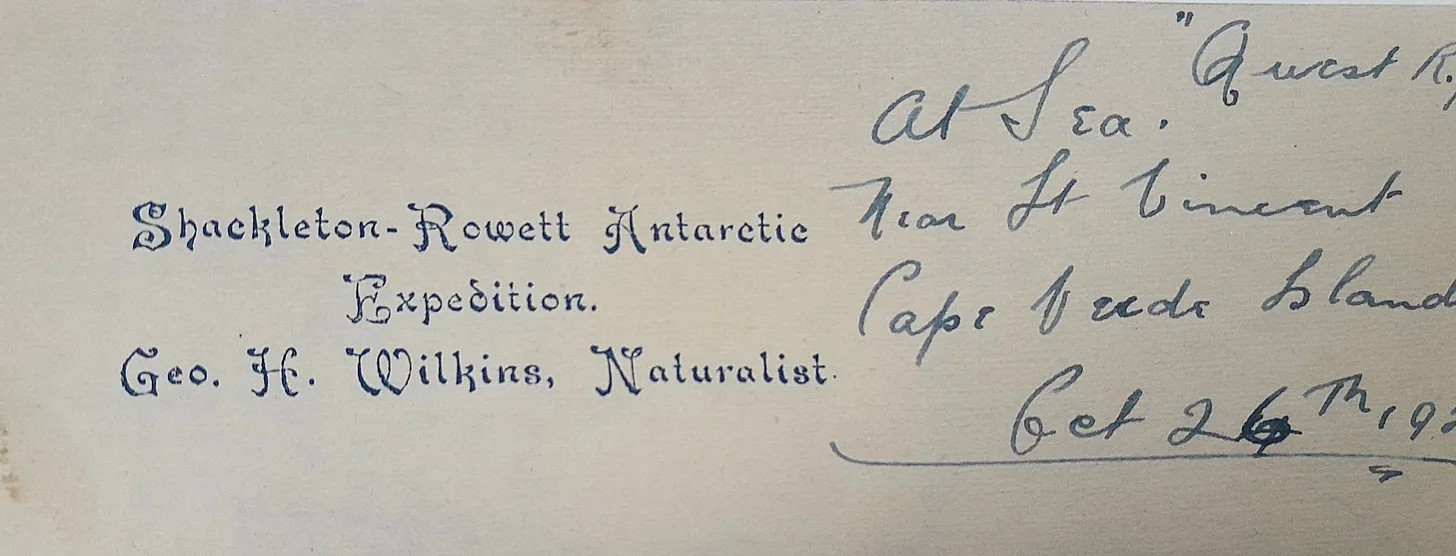 "Quest R.
At Sea.
Near St Vincent
Shackleton-Rowett Antarctic
Cape Verde Island
Expedition.
Geo. H. Wilkins, Naturalist.
Oct 26TH, 192